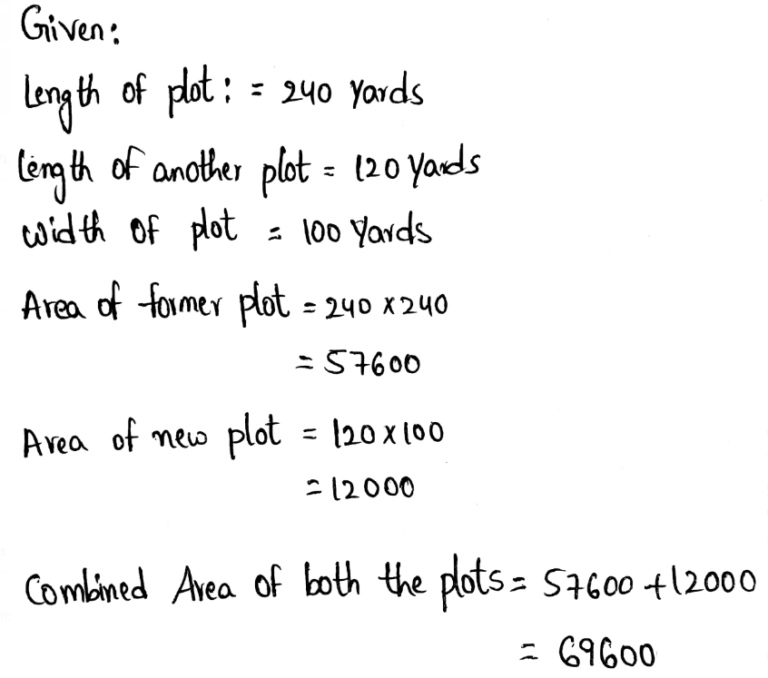 Given:
Length of plot: = 240 Yards
Length of another plot = 120 Yards
width of plot = 100 Yards
Area of former plot = 240 x 240
= 57600
Area of new plot = 120 x 100
= 12000
Combined Area of both the plots = 57600 + 12000
= 69600